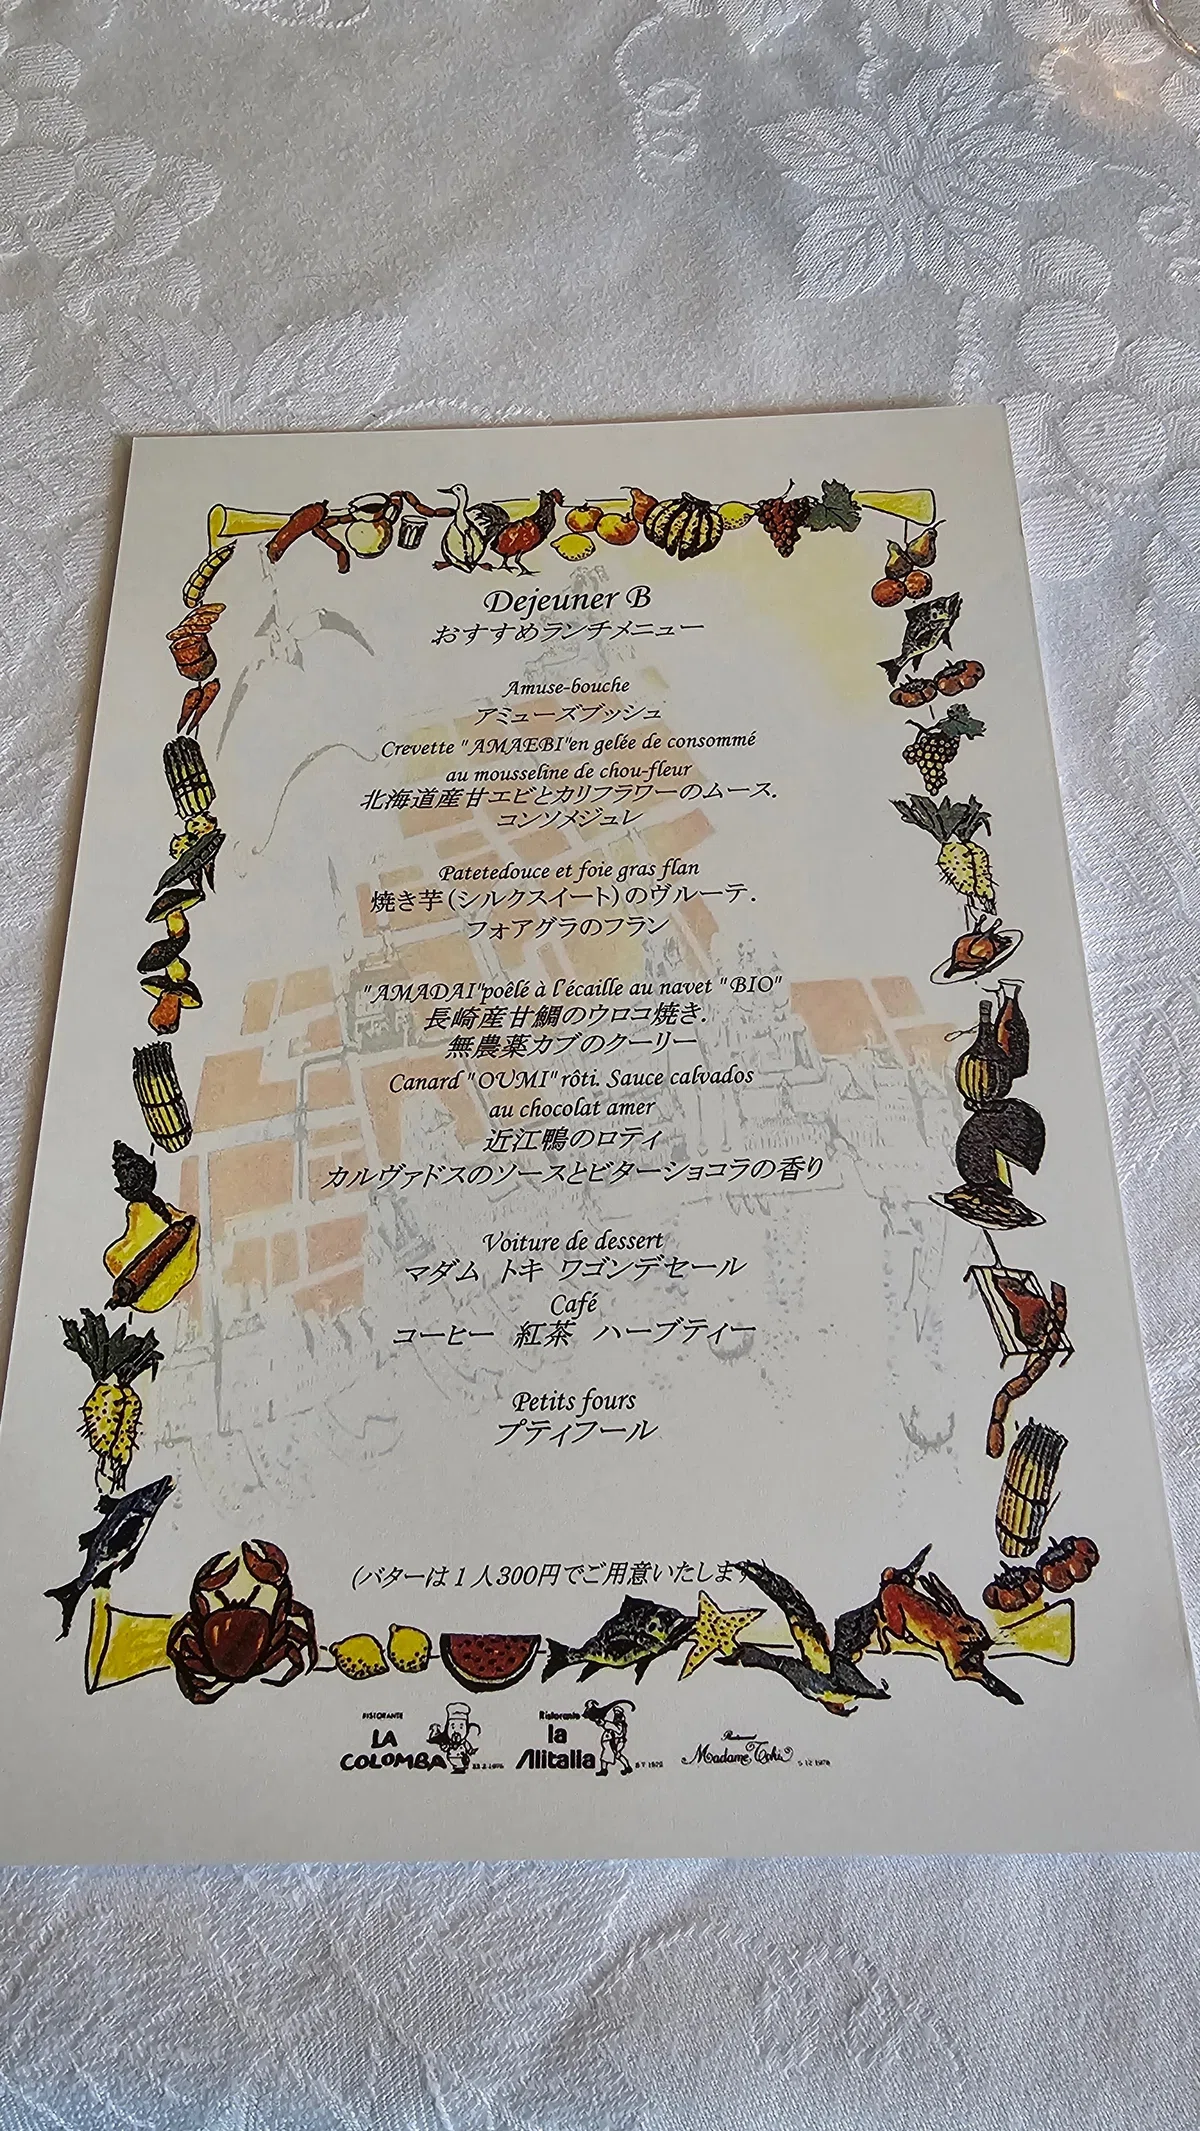 Dejeuner B
おすすめランチメニュー
Amuse-bouche
アミューズブッシュ
Crevette "AMAEBI"en gelée de consommé
au mousseline de chou-fleur
北海道産甘エビとカリフラワーのムース.
コンソメジュレ
Patetedouce et foie gras flan
焼き芋(シルクスイート)のヴルーテ.
フォアグラのフラン
"AMADAI"poêlé à l'écaille au navet "BIO"
長崎産甘鯛のウロコ焼き.
無農薬カブのクーリー
Canard "OUMI" rôti. Sauce calvados
au chocolat amer
近江鴨のロティ
カルヴァドスのソースとビターショコラの香り
Voiture de dessert
マダム トキ ワゴンデセール
Café
コーヒー 紅茶 ハーブティー
Petits fours
プティフール
(バターは1人300円でご用意いたします)
RISTORANTE
LA COLOMBA
Ristorante
la Alitalia
Restaurant
Madame Toki